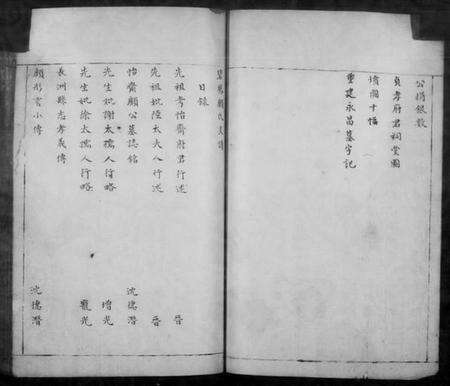 公捐銀數
貞孝府君祠堂圖
墳圖十幅
重建永昌墓亭記
目錄
先祖考怡齋府君行述 晉
先祖妣陸太夫人行述 晉
怡齋顧公墓誌銘 沈德潛
先生妣謝太孺人行略 增光
先生妣徐太孺人行略 光
長洲縣志孝義傳
顧彤小傳 沈德潛